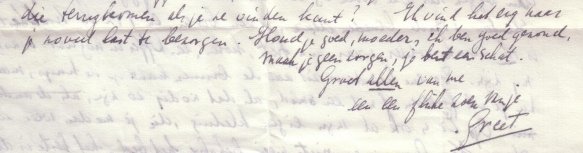 die terugkomen als je ze vinden kunt? Ik vind het erg naar
je zoveel last te bezorgen. Houd je goed, moeder, ik ben goed gezond,
maak je geen zorgen, je bent een schat.
Groet allen van me
en een flinke zoen van je
Greet